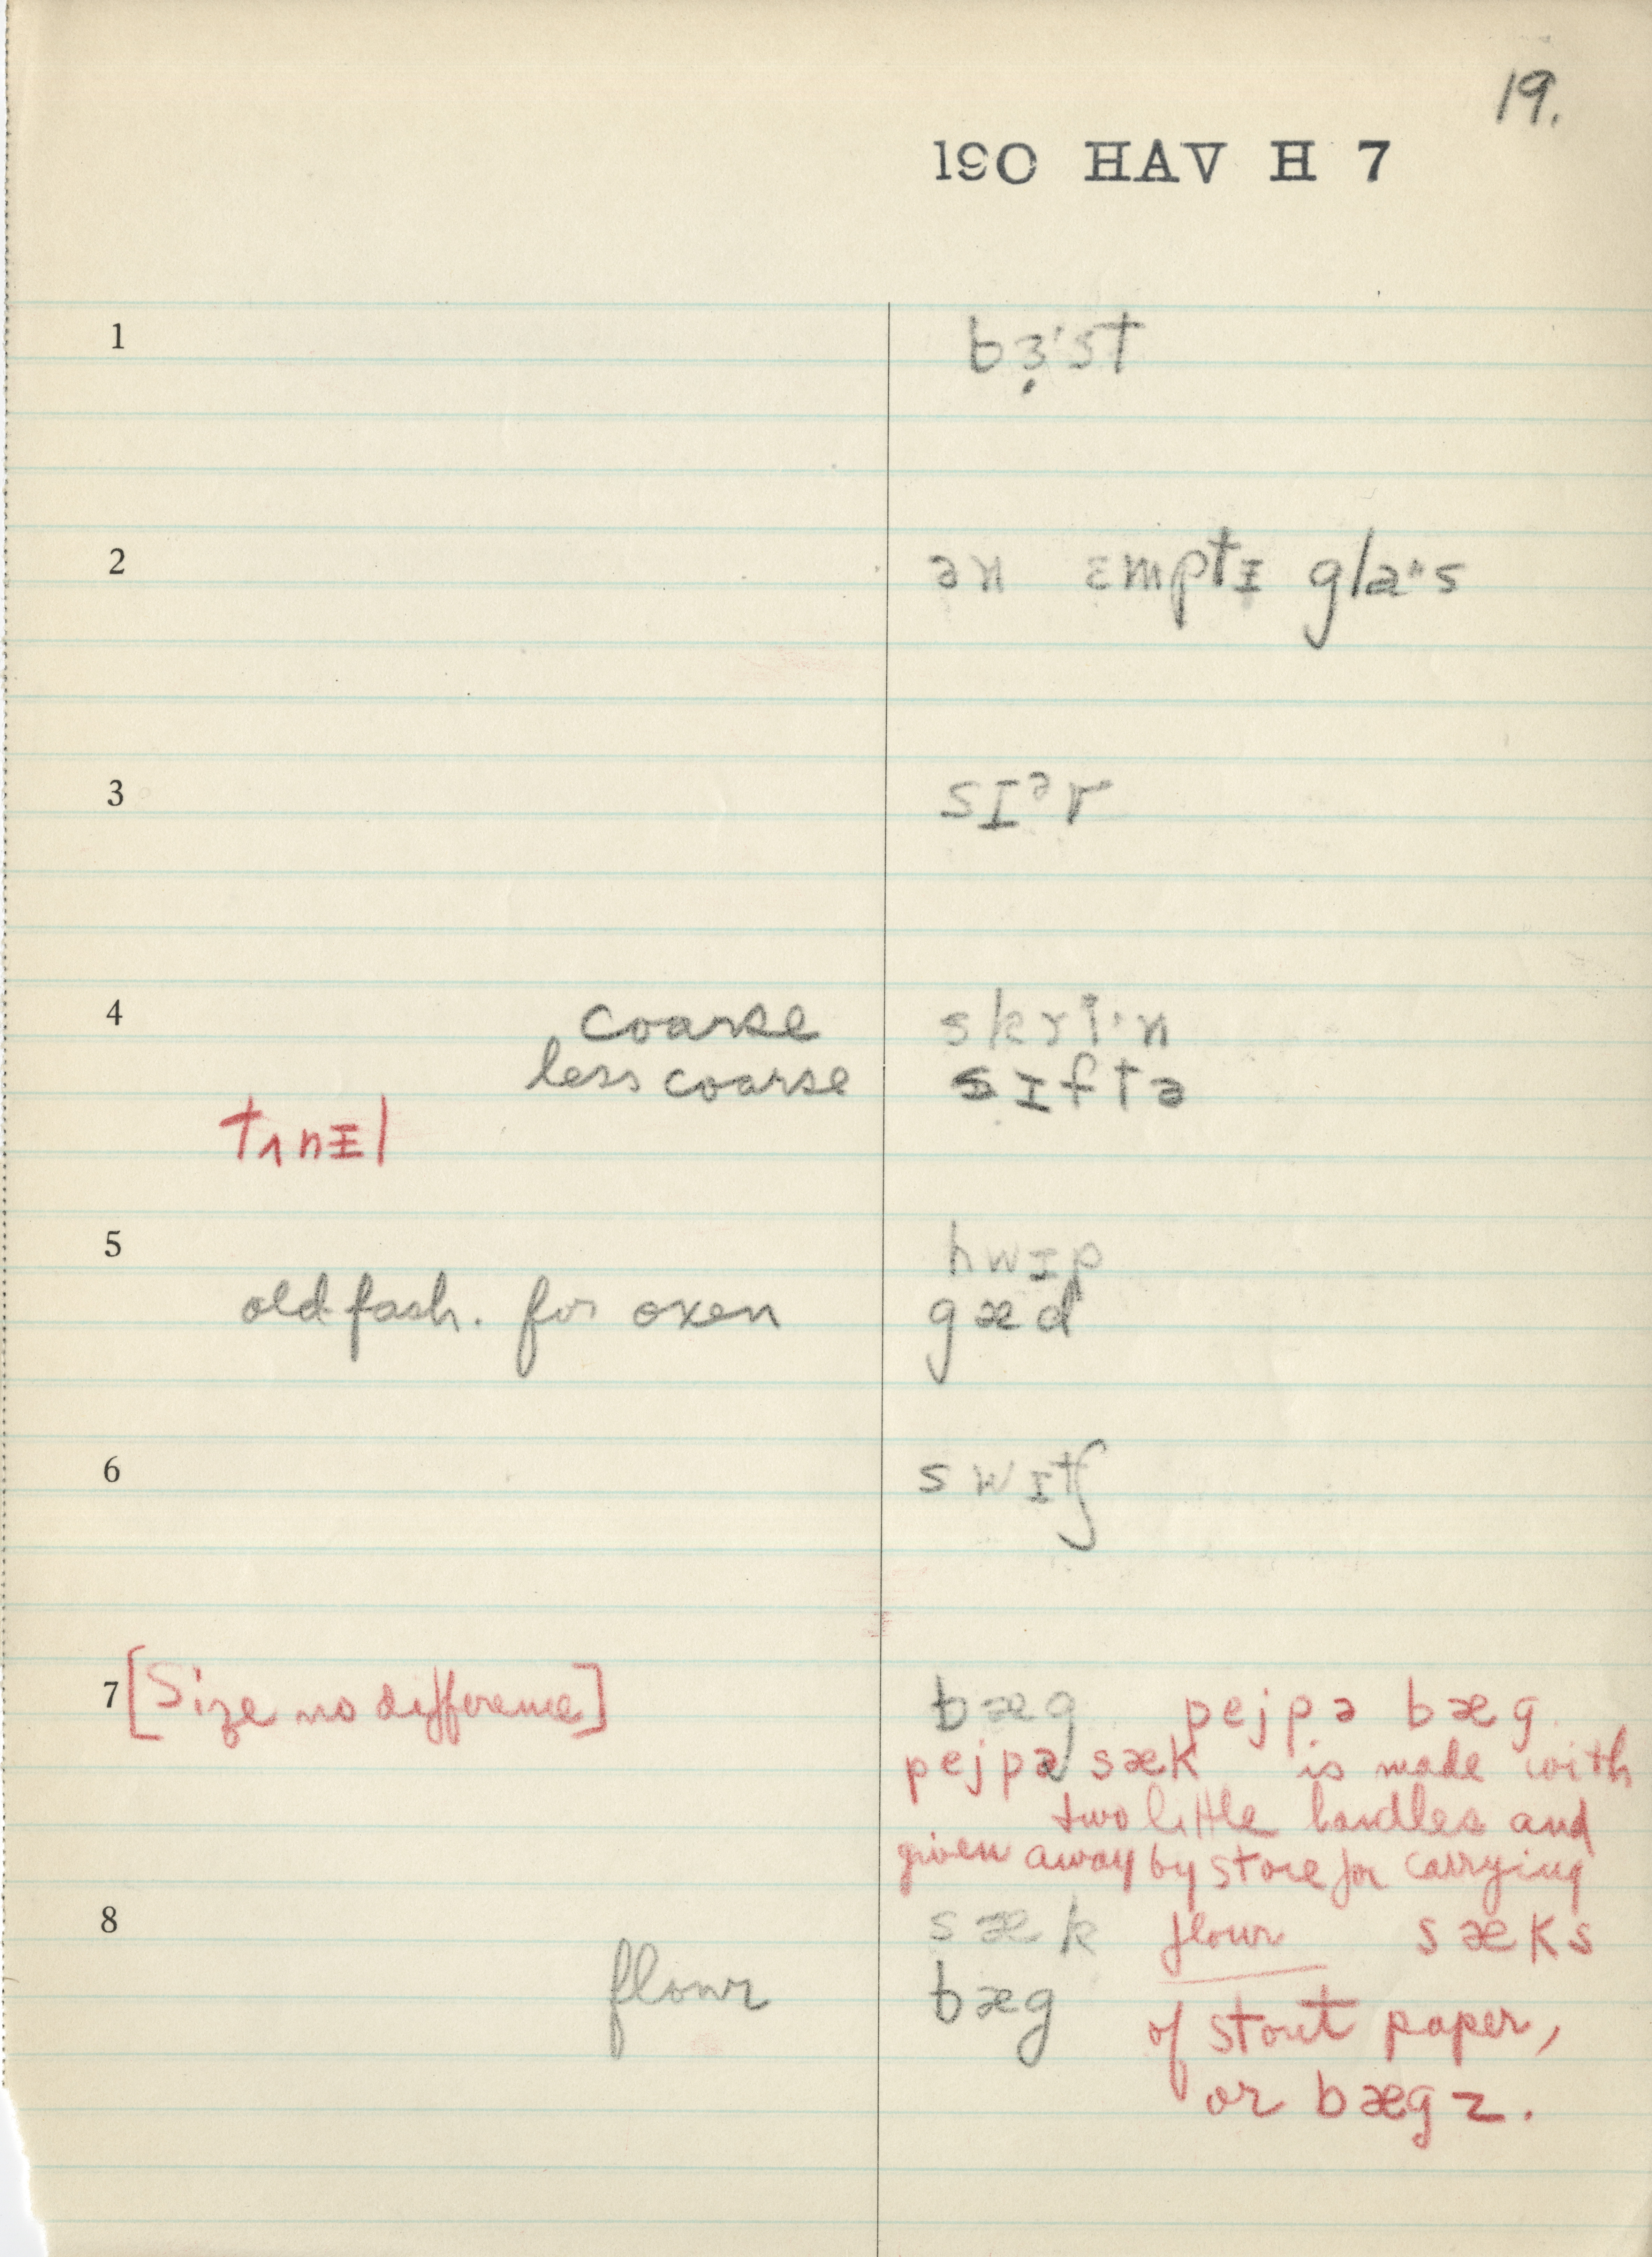 19.
190 HAV H 7
1 bɜ̣'st
2 ən ɛmptɪ gla·s
3 sɪᵊr
4 coarse skri·n
less coarse sɪftə
tʌnɪl
5 hwɪp
old fash. for oxen gæd
6 swɪtʃ
7 [Size no difference] bæg pejpə bæg
pejpə sæk is made with
two little handles and
given away by store for carrying
8 sæk flour sæks
flour bæg of stout paper,
or bægz.